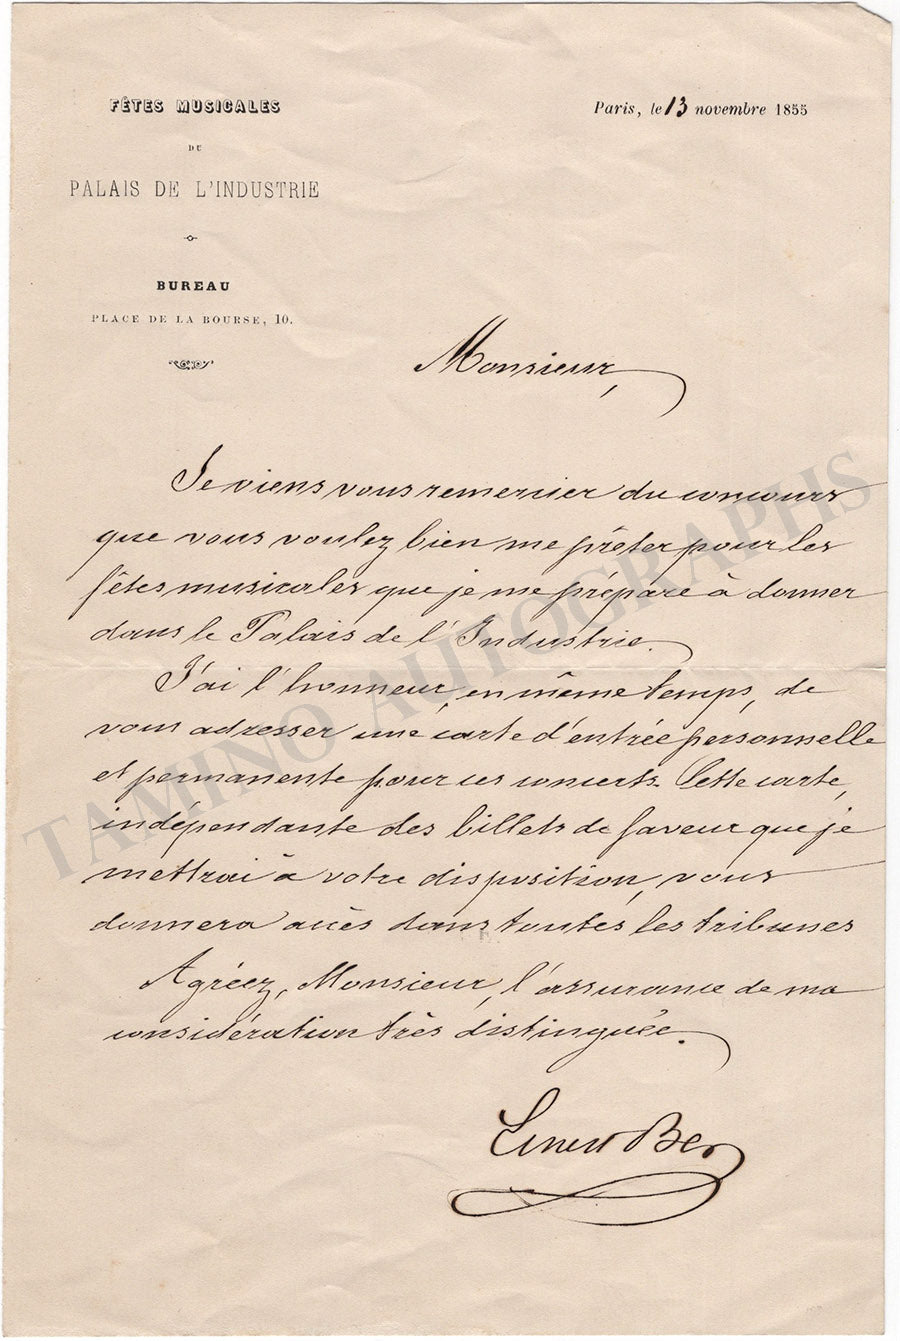 FÊTES MUSICALES
DU
PALAIS DE L'INDUSTRIE
BUREAU
PLACE DE LA BOURSE, 10.
Paris, le 13 novembre 1855
Monsieur,
Je viens vous remercier du concours
que vous voulez bien me prêter pour les
fêtes musicales que je me prépare à donner
dans le Palais de l'Industrie.
J'ai l'honneur, en même temps, de
vous adresser une carte d'entrée personnelle
et permanente pour ces concerts. Cette carte,
indépendante des billets de faveur que je
mettrai à votre disposition, vous
donnera accès dans toutes les tribunes
Agréez, Monsieur, l'assurance de ma
considération très distinguée.
Ber
TAMINO AUTOGRAPHS